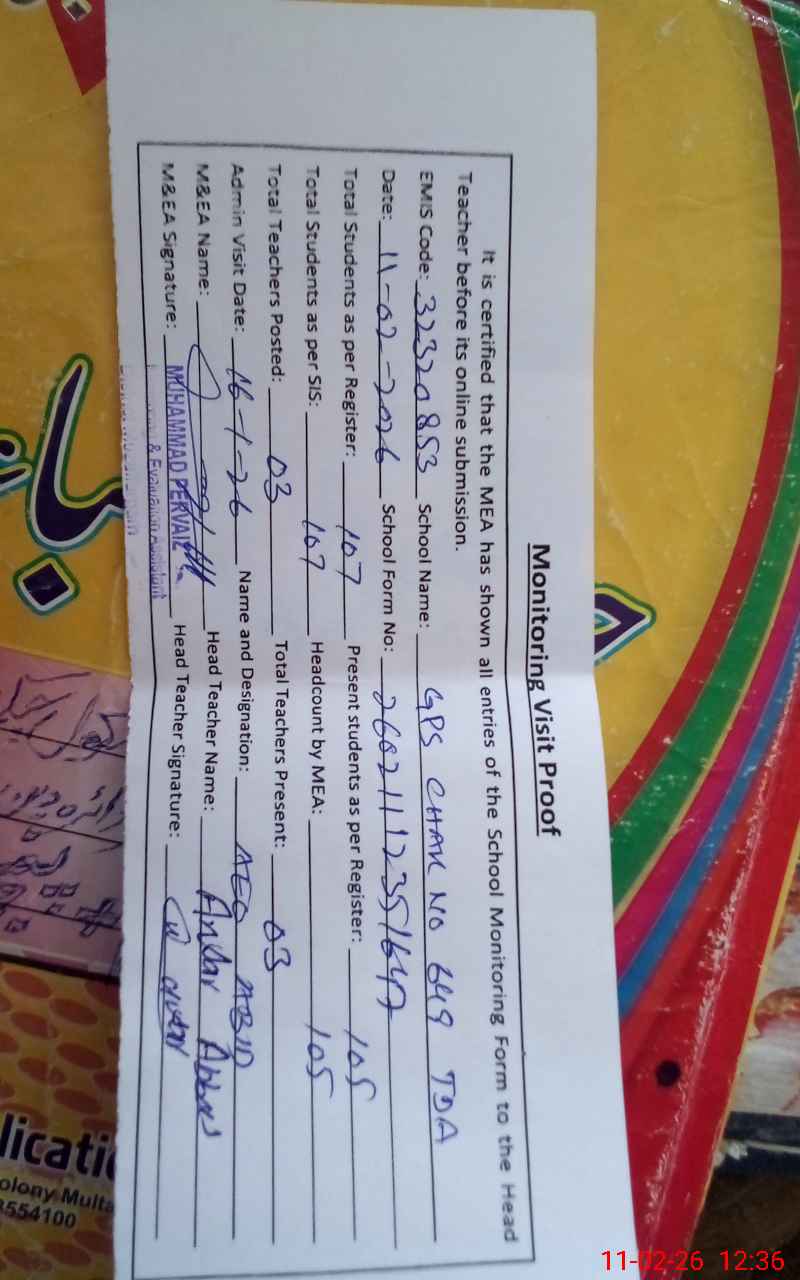 Monitoring Visit Proof
It is certified that the MEA has shown all entries of the School Monitoring Form to the Head
Teacher before its online submission.
EMIS Code: 32320853 School Name: GPS CHAK NO 649 TDA
Date: 11-02-2026 School Form No:
Total Students as per Register: 107 Present students as per Register: 105
Total Students as per SIS: 107 Headcount by MEA: 105
Total Teachers Posted: 03 Total Teachers Present: 03
Admin Visit Date: 16-1-26 Name and Designation: AEO ABID
M&EA Name: Head Teacher Name: Abbas
M&EA Signature: MUHAMMAD PERVAIZ Head Teacher Signature:
& Evaluation Assistant
olony Multa
554100
11-02-26 12:36